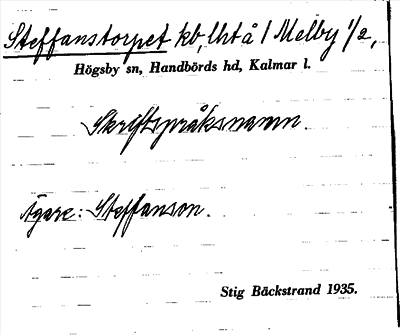 Steffanstorpet kb, lht å 1 Melby 1/2,
Högsby sn, Handbörds hd, Kalmar l.
Skriftspråksnamn.
Ägare: Steffanson.
Stig Bäckstrand 1935.